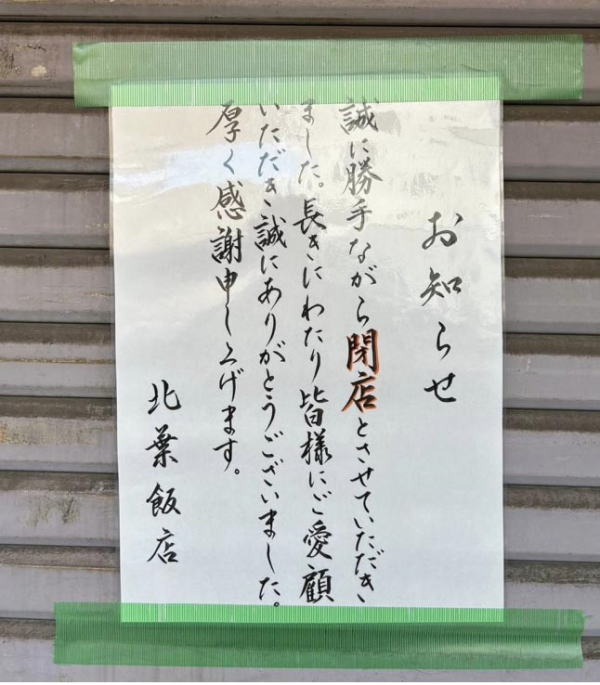 お知らせ
誠に勝手ながら閉店とさせていただき
ました。長きにわたり皆様にご愛顧
いただき誠にありがとうございました。
厚く感謝申し上げます。
北葉飯店